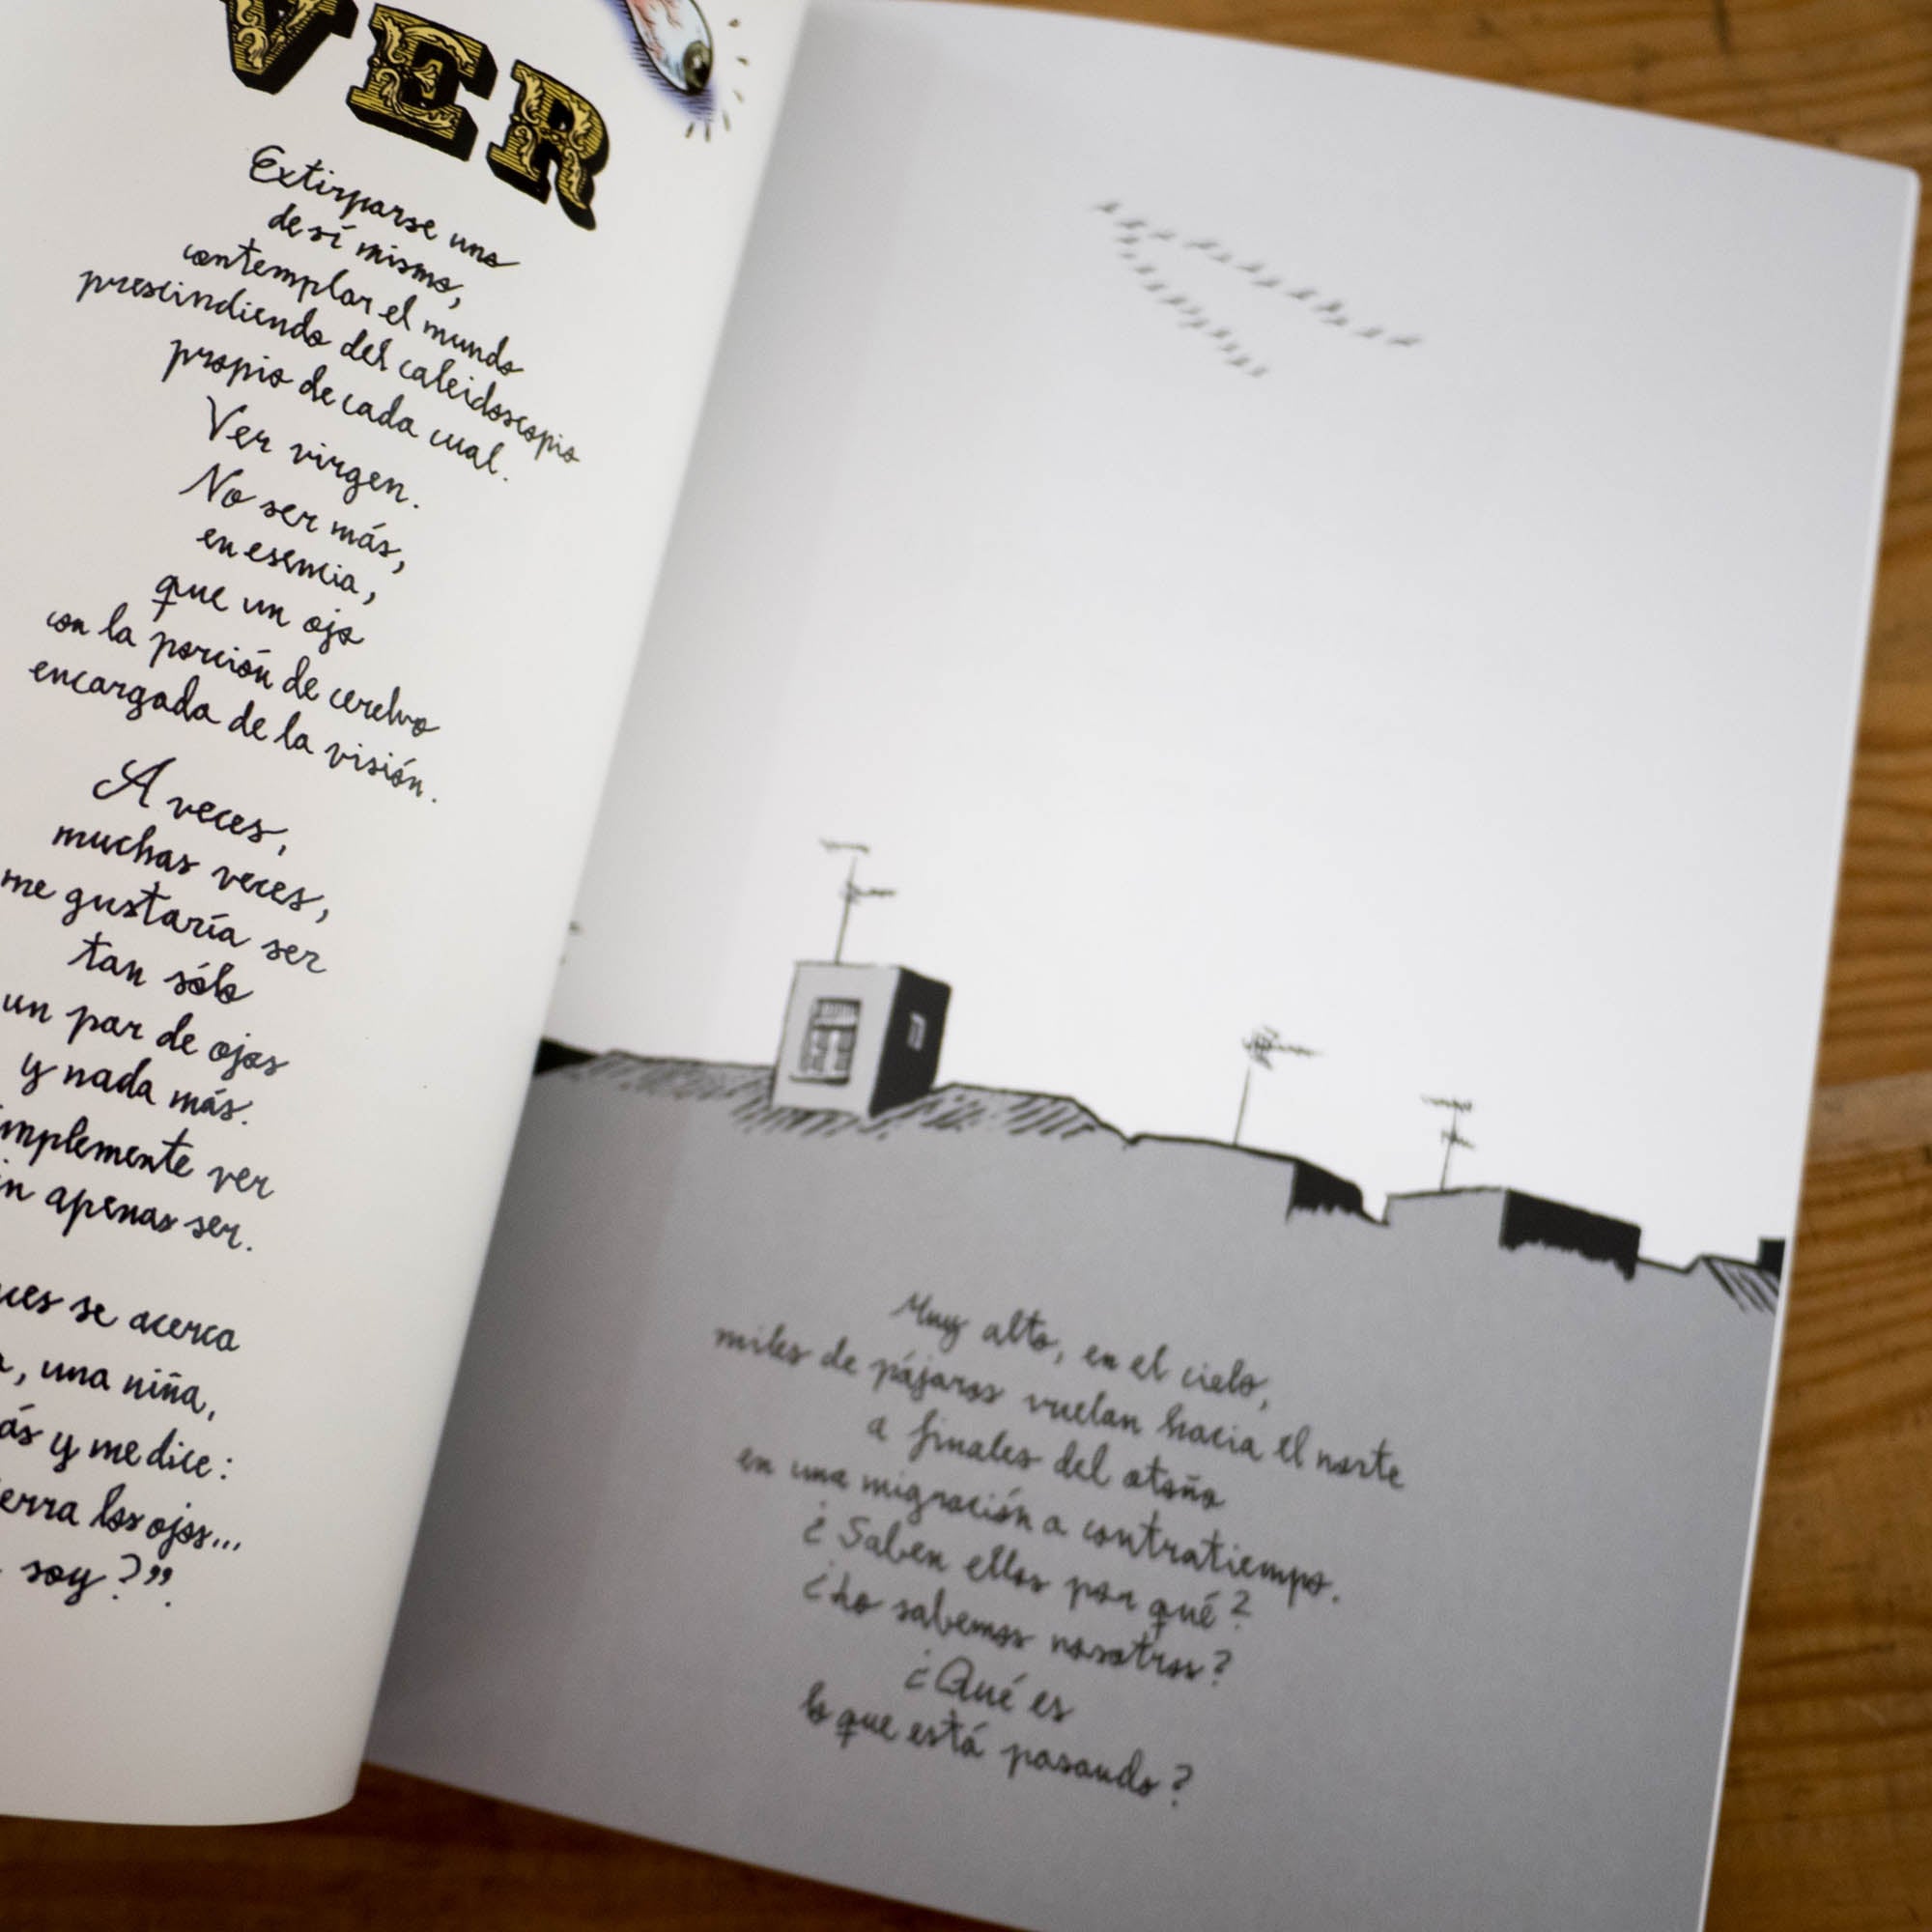 VER
Extirparse uno
de sí mismo,
contemplar el mundo
prescindiendo del caleidoscopio
propio de cada cual.
Ver virgen.
No ser más,
en esencia,
que un ojo
con la porción de cerebro
encargada de la visión.
A veces,
muchas veces,
me gustaría ser
tan sólo
un par de ojos
y nada más.
implemente ver
in apenas ser.
ces se acerca
, una niña,
ás y me dice:
erra los ojos...
soy?”.
Muy alto, en el cielo,
miles de pájaros vuelan hacia el norte
a finales del otoño
en una migración a contratiempo.
¿Saben ellos por qué?
¿Lo sabemos nosotros?
¿Qué es
lo que está pasando?